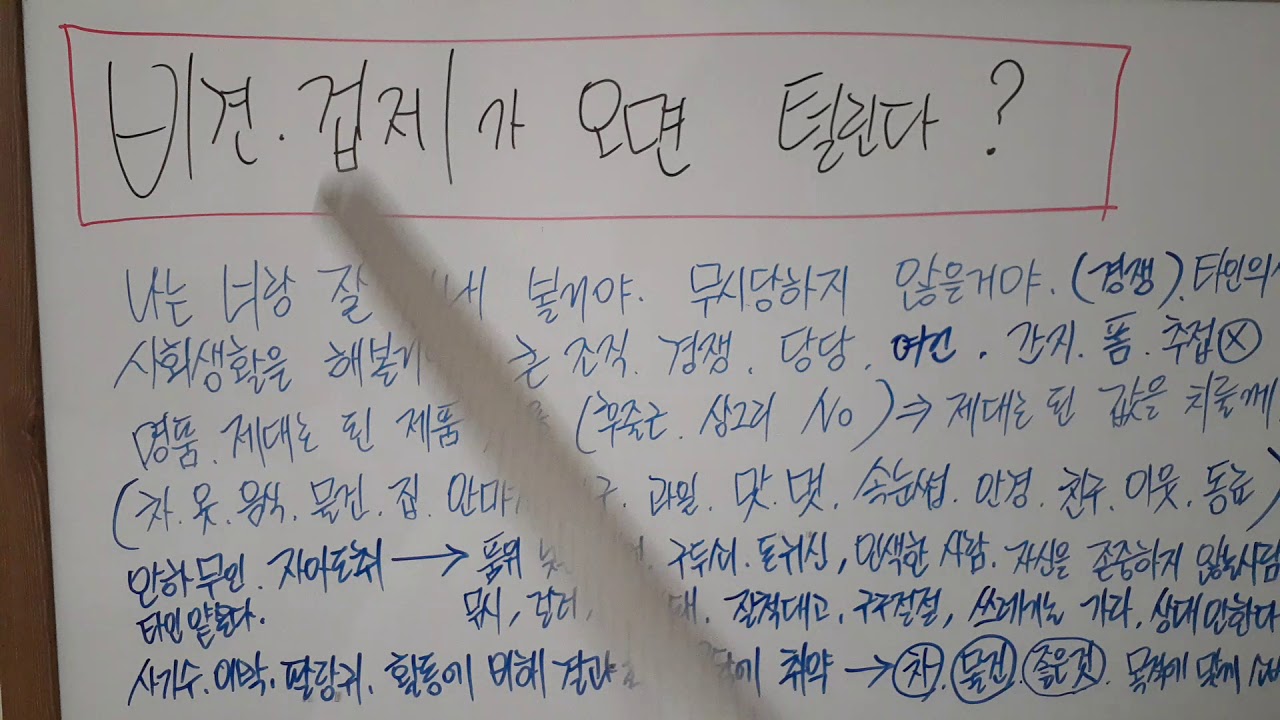 비견. 겁제가 오면 털린다?
나는 너랑 잘 내 볼거야. 무시당하지 않을거야. (경쟁). 타인의
사회생활을 해볼 는 조직. 경쟁. 당당. 여건. 간지. 폼. 추접 ⓧ
명품. 제대로 된 제품 (후줄근. 싱그리 No) ⇒ 제대로 된 값을 치를께
(차. 옷. 음식. 물건. 집. 안마 구. 과일. 맛. 멋. 속눈썹. 안경. 친구. 이웃. 동료)
안하무인. 자아도취 → 품위 구두쇠. 돈귀신, 인색한 사람. 자신을 존중하지 않는사람
타인 얕본다. 무시, 갈취, 대. 질척대고, 구구절절, 쓰레기는 가라, 상대안한다
사기수. 여박. 팔랑귀. 활동에 비해 결과 에 취약 → 차. 물건. 좋은것. 목적에 맞게